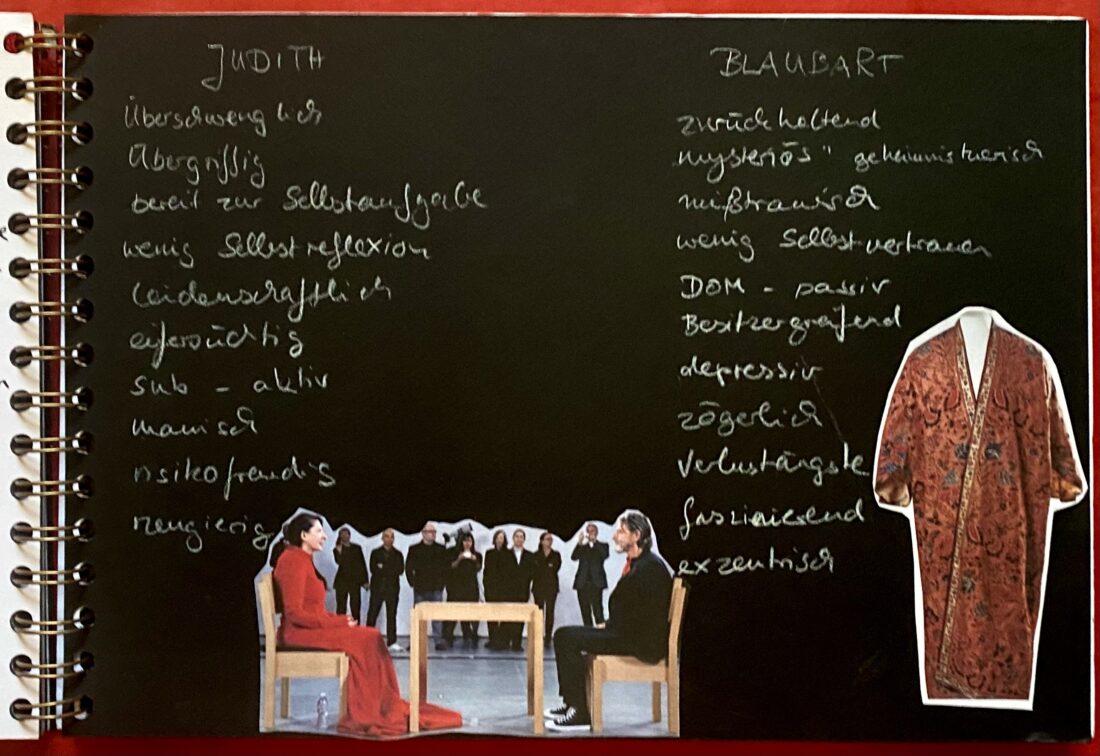 JUDITH
Überschwenglich
Übergriffig
bereit zur Selbstaufgabe
wenig Selbstreflexion
leidenschaftlich
eifersüchtig
sub - aktiv
manisch
risikofreudig
neugierig
BLAUBART
zurückhaltend
mysteriös " geheimnistuerisch
mißtrauisch
wenig Selbstvertrauen
DOM - passiv
Besitzergreifend
depressiv
zögerlich
Verlustängste
faszinierend
exzentrisch